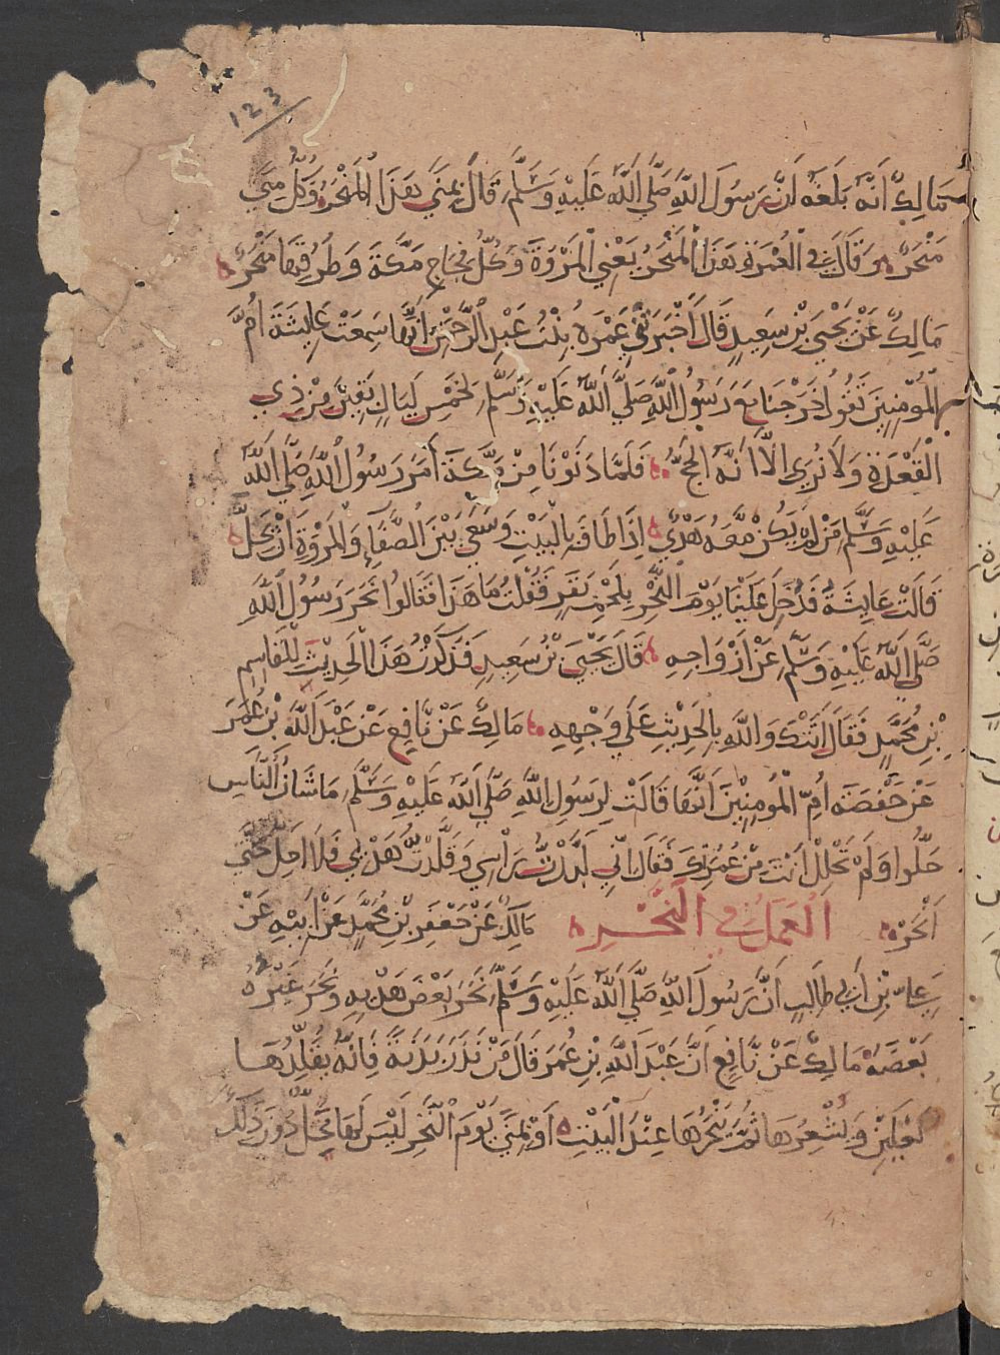 123
مَالِكٌ أَنَّهُ بَلَغَهُ أَنَّ رَسُولَ اللَّهِ صَلَّى اللَّهُ عَلَيْهِ وَسَلَّمَ قَالَ بِمِنًى هَذَا الْمَنْحَرُ وَكُلُّ مِنًى
مَنْحَرٌ وَقَالَ فِي الْعُمْرَةِ هَذَا الْمَنْحَرُ يَعْنِي الْمَرْوَةَ وَكُلُّ فِجَاجِ مَكَّةَ وَطُرُقِهَا مَنْحَرٌ
مَالِكٌ عَنْ يَحْيَى بْنِ سَعِيدٍ قَالَ أَخْبَرَتْنِي عَمْرَةُ بِنْتُ عَبْدِ الرَّحْمَنِ أَنَّهَا سَمِعَتْ عَايِشَةَ أُمَّ
الْمُؤْمِنِينَ تَقُولُ خَرَجْنَا مَعَ رَسُولِ اللَّهِ صَلَّى اللَّهُ عَلَيْهِ وَسَلَّمَ لِخَمْسِ لَيَالٍ بَقِينَ مِنْ ذِي
الْقَعْدَةِ وَلَا نُرَى إِلَّا أَنَّهُ الْحَجُّ فَلَمَّا دَنَوْنَا مِنْ مَكَّةَ أَمَرَ رَسُولُ اللَّهِ صَلَّى اللَّهُ
عَلَيْهِ وَسَلَّمَ مَنْ لَمْ يَكُنْ مَعَهُ هَدْيٌ إِذَا طَافَ بِالْبَيْتِ وَسَعَى بَيْنَ الصَّفَا وَالْمَرْوَةِ أَنْ يَحِلَّ
قَالَتْ عَايِشَةُ فَدُخِلَ عَلَيْنَا يَوْمَ النَّحْرِ بِلَحْمِ بَقَرٍ فَقُلْتُ مَا هَذَا فَقَالُوا نَحَرَ رَسُولُ اللَّهِ
صَلَّى اللَّهُ عَلَيْهِ وَسَلَّمَ عَنْ أَزْوَاجِهِ قَالَ يَحْيَى بْنُ سَعِيدٍ فَذَكَرْتُ هَذَا الْحَدِيثَ لِلْقَاسِمِ
بْنِ مُحَمَّدٍ فَقَالَ أَتَتْكَ وَاللَّهِ بِالْحَدِيثِ عَلَى وَجْهِهِ مَالِكٌ عَنْ نَافِعٍ عَنْ عَبْدِ اللَّهِ بْنِ عُمَرَ
عَنْ حَفْصَةَ أُمِّ الْمُؤْمِنِينَ أَنَّهَا قَالَتْ لِرَسُولِ اللَّهِ صَلَّى اللَّهُ عَلَيْهِ وَسَلَّمَ مَا شَأْنُ النَّاسِ
حَلُّوا وَلَمْ تَحْلِلْ أَنْتَ مِنْ عُمْرَتِكَ فَقَالَ إِنِّي لَبَّدْتُ رَأْسِي وَقَلَّدْتُ هَدْيِي فَلَا أَحِلُّ حَتَّى
أَنْحَرَ الْعَمَلُ فِي النَّحْرِ مَالِكٌ عَنْ جَعْفَرِ بْنِ مُحَمَّدٍ عَنْ أَبِيهِ عَنْ
عَلِيِّ بْنِ أَبِي طَالِبٍ أَنَّ رَسُولَ اللَّهِ صَلَّى اللَّهُ عَلَيْهِ وَسَلَّمَ نَحَرَ بَعْضَ هَدْيِهِ وَنَحَرَ غَيْرُهُ
بَعْضَهُ مَالِكٌ عَنْ نَافِعٍ أَنَّ عَبْدَ اللَّهِ بْنَ عُمَرَ قَالَ مَنْ نَذَرَ بَدَنَةً فَإِنَّهُ يُقَلِّدُهَا
نَعْلَيْنِ وَيُشْعِرُهَا ثُمَّ يَنْحَرُهَا عِنْدَ الْبَيْتِ أَوْ بِمِنًى يَوْمَ النَّحْرِ لَيْسَ لَهَا مَحِلٌّ دُونَ ذَلِكَ